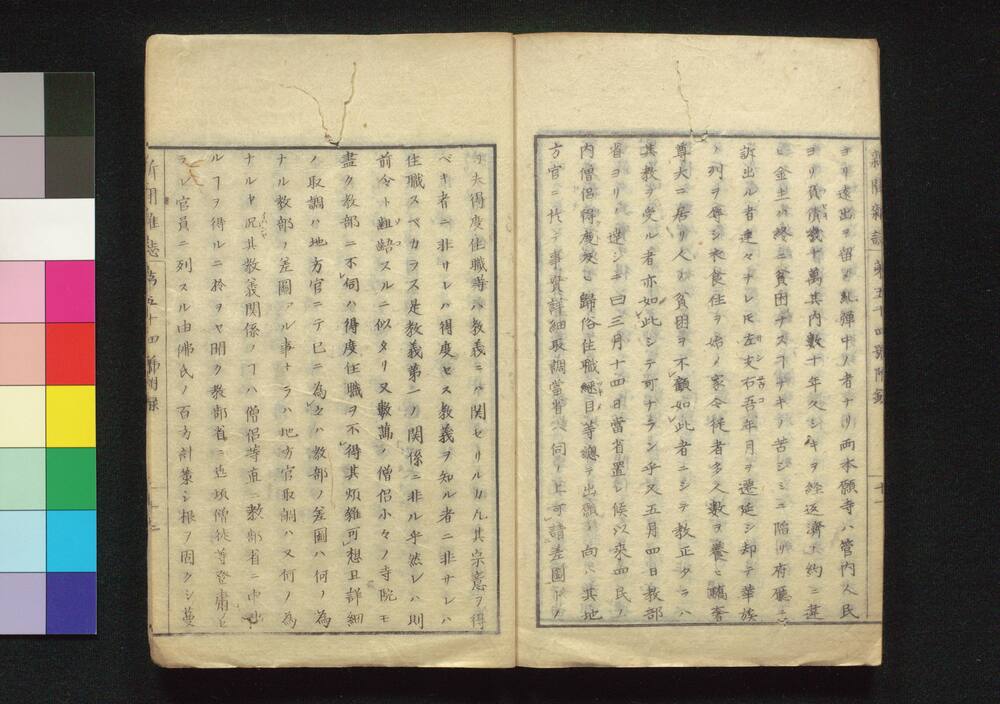 新聞雜誌 第五十四號附錄
ヨリ遠出ヲ留メ糺彈中ノ者ナリ両本願寺ハ管内人民
ヨリ負債幾十萬其内數十年久シキヲ経返濟ノ約ニ違
ヒ金主ハ終ニ貧困ナスヿナキノ苦シミニ陥リ府廳ニ
訴出ル者連々ナレ𪜈左支右吾年月ヲ遷延シ却テ華族
ノ列ヲ辱シ衣食住ヲ始メ家令従者多人數ヲ養ヒ驕奢
尊大ニ居リ人ノ貧困ヲ不顧如此者ニシテ教正タラハ
其教ヲ受ル者亦如此シテ可ナラン乎又五月四日教部
省ヨリノ達シニ曰三月十四日當省置レ候以來四民ノ
内僧侶得度及ヒ歸俗住職継目等總テ出願ノ向ハ其地
方官ニ於テ事實詳細取調當省ヘ伺ノ上可請差圖トノ
ヿ夫得度住職等ハ教義ニハ関セリルカ凡其宗意ヲ得
ベキ者ニ非サレハ得度セス教義ヲ知ル者ニ非サレハ
住職スベカラス是教義第一ノ関係ニ非ル乎然レハ則
前令ト齟齬スルニ似タリ又數萬ノ僧侶小々ノ寺院モ
盡ク教部ニ不伺ハ得度住職ヲ不得其煩雑可想且詳細
ノ取調ハ地方官ニテ已ニ為セハ教部ノ差圖ハ何ノ為
ナル教部ノ差圖アル事ナラハ地方官取調ハ又何ノ為
ナルヤ況其教義関係ノヿハ僧侶等直ニ教部省ニ申出
ルヿヲ得ルニ於ヲヤ聞ク教部省ニ近頃僧徒等登庸セ
ラレ官員ニ列スル由佛氏ノ百方計策シ根ヲ固クシ蔓
新聞雜誌 第五十四號附錄